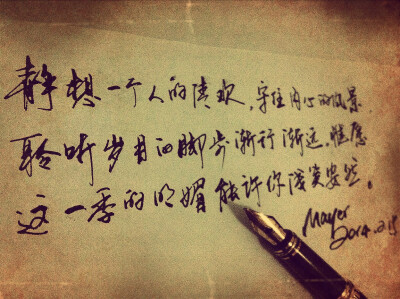 静想一个人的清欢,守住内心的风景,
聆听岁月的脚步渐行渐远,惟愿
这一季的明媚能许你浅笑安然。
Mayer
2014.2.15